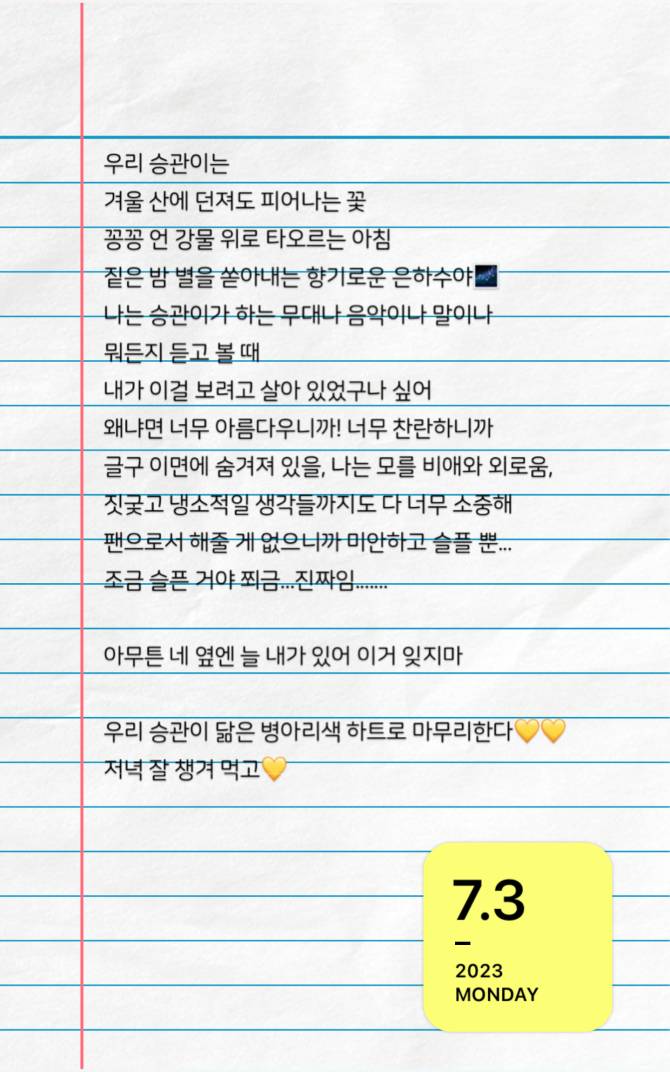 우리 승관이는
겨울 산에 던져도 피어나는 꽃
꽁꽁 언 강물 위로 타오르는 아침
짙은 밤 별을 쏟아내는 향기로운 은하수야🌌
나는 승관이가 하는 무대나 음악이나 말이나
뭐든지 듣고 볼 때
내가 이걸 보려고 살아 있었구나 싶어
왜냐면 너무 아름다우니까! 너무 찬란하니까
글구 이면에 숨겨져 있을, 나는 모를 비애와 외로움,
짓궂고 냉소적일 생각들까지도 다 너무 소중해
팬으로서 해줄 게 없으니까 미안하고 슬플 뿐...
조금 슬픈 거야 쬐금...진짜임.......
아무튼 네 옆엔 늘 내가 있어 이거 잊지마
우리 승관이 닮은 병아리색 하트로 마무리한다💛💛
저녁 잘 챙겨 먹고💛
7.3
2023
MONDAY